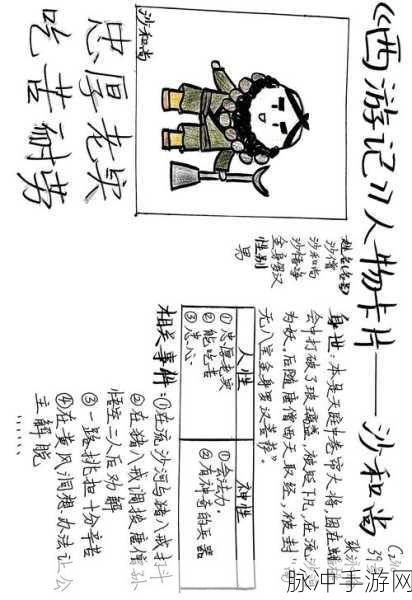 《西游记》人物卡片——沙和尚
沙和尚
忠厚老实
吃苦耐劳
姓名(名号)
沙僧
沙和尚
沙悟净
金身罗汉
性别
男
身世:本是天庭卷帘大将,因在蟠
会中打破了玻璃盏,被贬下凡,在流沙
为妖。后随唐僧西天取经,被封“
无八宝金身罗汉菩萨”。
人性
①忠厚老实
②能吃苦
③忠心
神性
①会法力
②有神奇的兵器
相关事件:①在流沙河与猪八戒打斗
②在猪八戒
悟空二人后劝解
③一路挑担十分辛苦
④在黄风洞想办法让公
主解脱
……
脉冲手游网